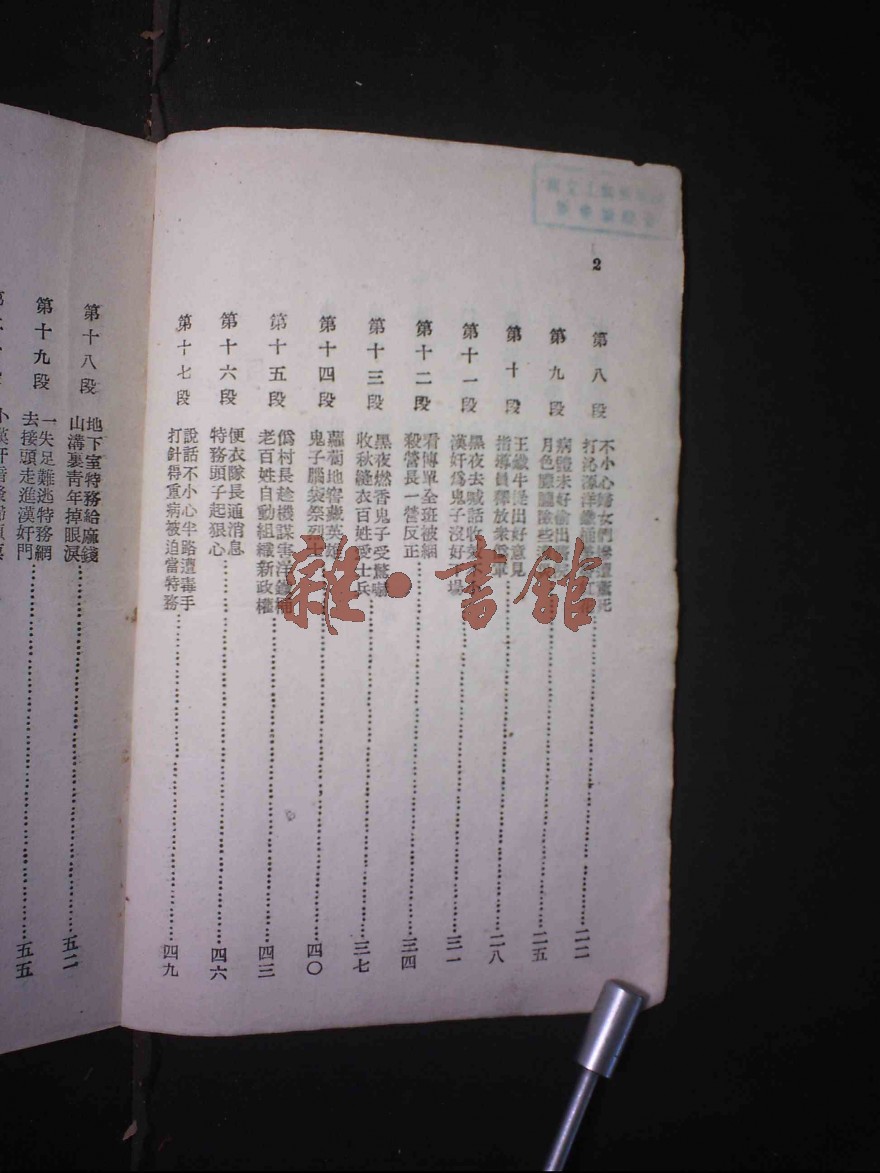 2
第八段
不小心婦女們慘遭
打沁源洋鐵桶
二二
第九段
病體未好偷出
月色朦朧險些
二五
第十段
王鐵牛提出好意見
指導員釋放眾僞軍
二八
第十一段
黑夜去喊話收
漢奸爲鬼子沒好下場
三一
第十二段
看傳單全班被綑
殺營長一營反正
三四
第十三段
黑夜燃香鬼子受驚嚇
收秋縫衣百姓愛士兵
三七
第十四段
蘿蔔地窖藏英雄
鬼子腦袋祭烈士
四〇
第十五段
僞村長趁機謀害洋鐵桶
老百姓自動組織新政權
四三
第十六段
便衣隊長通消息
特務頭子起狠心
四六
第十七段
說話不小心半路遭毒手
打針得重病被迫當特務
四九
第十八段
地下室特務給麻錢
山溝裏靑年掉眼淚
五二
第十九段
一失足難逃特務網
去接頭走進漢奸門
五五
雜·書館